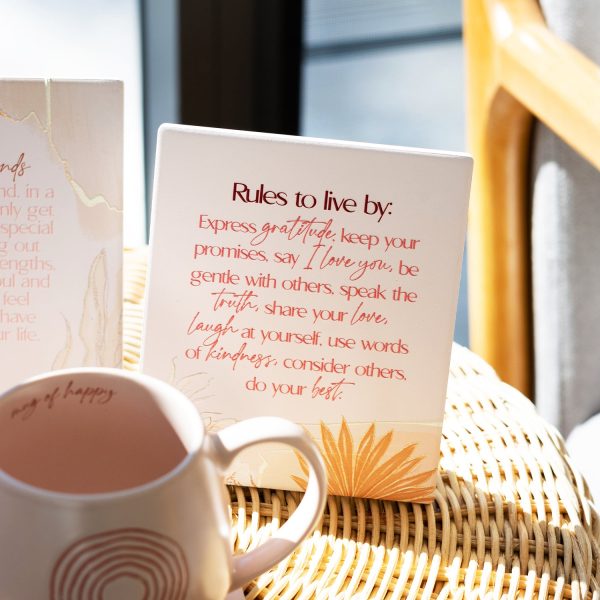 nds
nd, in a
nly get
special
g out.
engths,
oul and
feel
have
r life.
Rules to live by:
Express gratitude, keep your
promises, say I love you, be
gentle with others, speak the
truth, share your love,
laugh at yourself, use words
of kindness, consider others,
do your best.
mug of happy